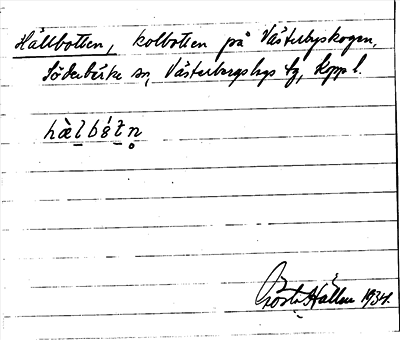 Hällbotten, kolbotten på Västerbyskogen,
Söderbärke sn, Västerbergslags tg, Kopp l.
hàl̠bót̠n̥
Gösta Hallén 1934.